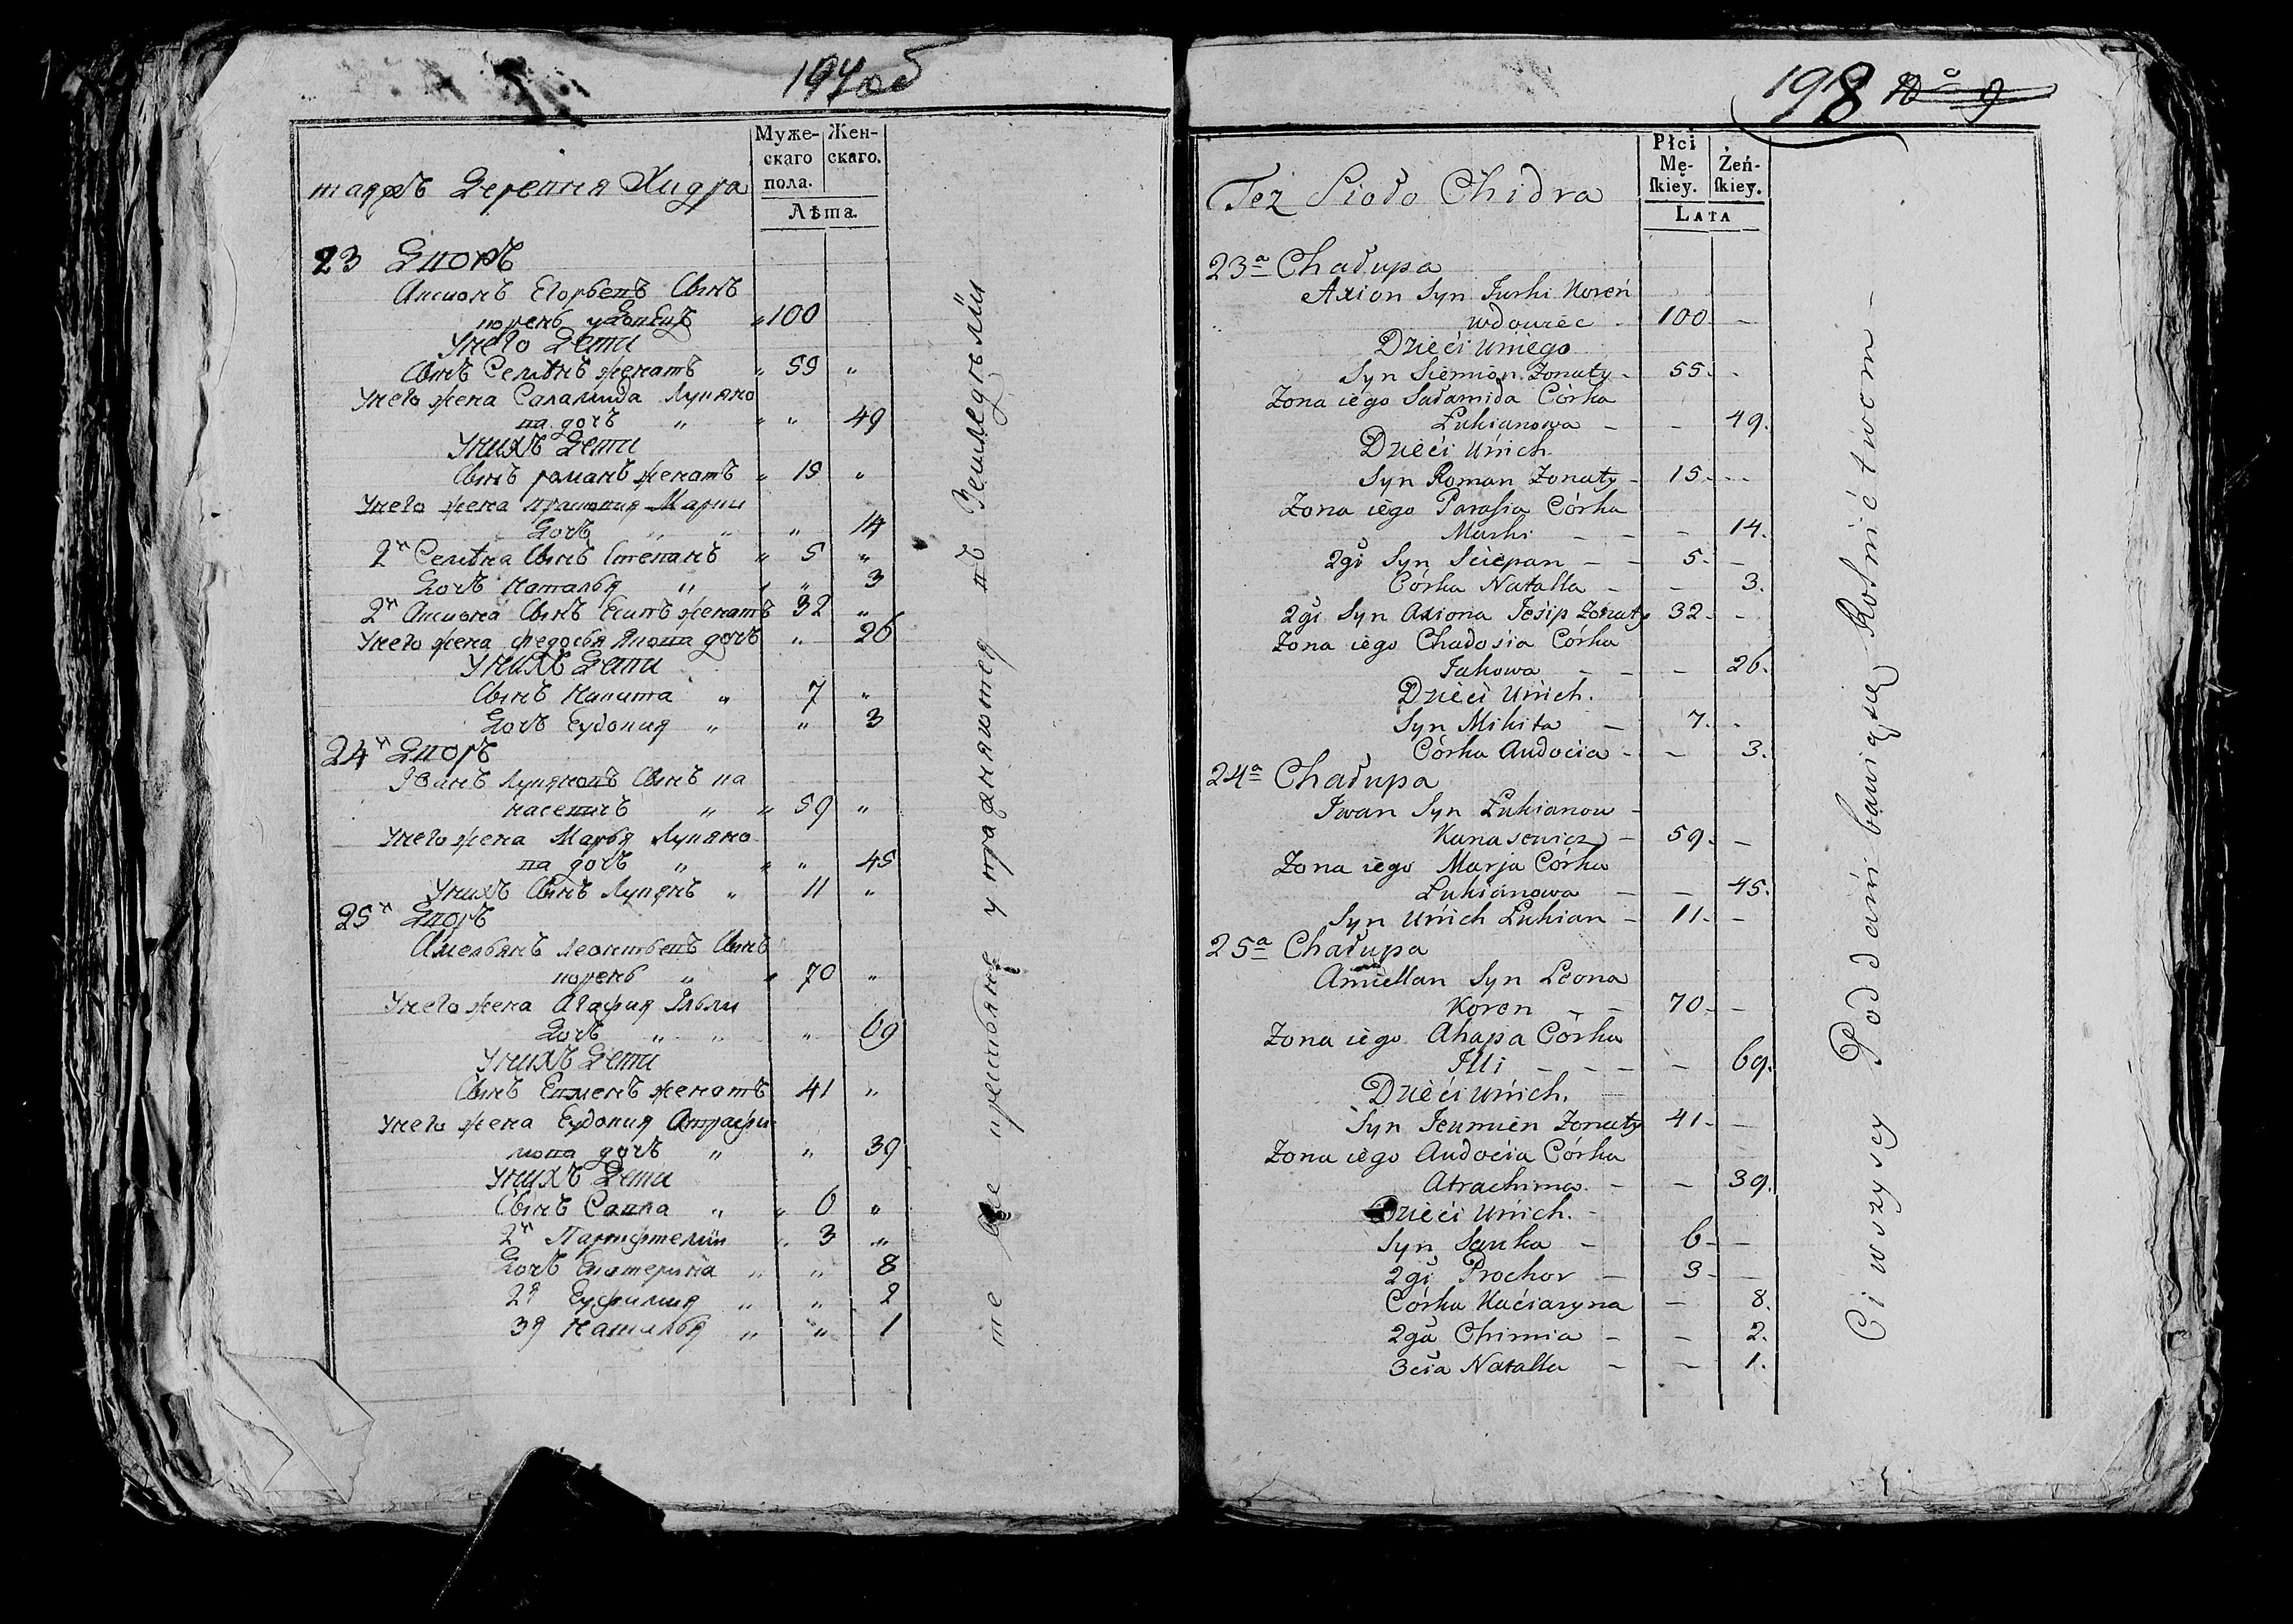 197 об
Муже-
скаго
пола.
Жен-
скаго.
Лѣта.
таяжъ Деревня Хидра
23 Дворъ
Аксионъ Егорьевъ Сынъ
корень удовецъ " 100
Унего Дети
Сынъ Семѣнъ женатъ " 55 "
Унего жена Саламида Лукяно
ва дочъ " " " 49
Унихъ Дети
Сынъ романъ женатъ " 15 "
Унего жена праковия Марки
Дочъ " " " 14
2й Семѣна Сынъ Степанъ " 5 "
Дочъ Наталья " " " 3
2й Аксиона Сынъ Есипъ женатъ 32 "
Унего жена федосья Якова дочъ " 26
Унихъ Дети
Сынъ Никита " 7 "
Дочъ Еудокия " " 3
24й Дворъ
Иванъ Лукяновъ Сынъ ка
насевичъ " " 59 "
Унего жена Марья Лукяно
ва дочъ " " " 45
Унихъ Сынъ Лукянъ " 11 "
25й Дворъ
Амельянъ Леонтьевъ Сынъ
корень " " 70 "
Унего жена Агафия Ильи
Дочъ " " " 69
Унихъ Дети
Сынъ Евменъ женатъ 41 "
Унего жена Еудокия Атрахи
мова дочъ " " 39
Унихъ Дети
Сынъ Савка " " 6 "
2й " 3 "
Дочъ Екатерина " " 8
2я Еуфимия " " 2
3я Наталья " " 1
те Все крестьяне упражняютея въ Земледѣлiи
198 No 9
Płci
Mę-
ſkiey.
Żeń-
ſkiey.
LATA
Też Sioło Chidra
23a Chałupa
Axion Syn Jurki Koreń
wdowiec - 100 -
Dzieći Uniego
Syn Siemion Żonaty - 55 - -
Żona iego Sałamida Córka
Łukianowa - - 49.
Dzieći Unich
Syn Roman Żonaty - 15 - -
Żona iego Parasia Córka
Marki - - - 14.
2gi Syn Sciepan - - 5 - -
Córka Natalla - - 3.
2gi Syn Axiona Jesip Żonaty 32 - -
Żona iego Chadosia Córka
Jakowa - - - 26.
Dzieći Unich.
Syn Mikita - 7. -
Córka Audocia - - 3.
24a Chałupa
Iwan Syn Łukianow -
Kanasewicz - 59. -
Żona iego Marja Córka
Łukianowa - - 45.
Syn Unich Łukian - 11. -
25a Chałupa
Amiellan Syn Leona
Koren - - 70 - -
Żona iego Ahapa Córka
Illi - - - - 69.
Dzieći Unich.
Syn Jeumien Żonaty 41 - -
Żona iego Audocia Córka
Atrachima - - 39.
Dzieći Unich. -
Syn Sauka - 6 - -
2gi Prochor - 3 - -
Córka Kaciaryna - 8.
2ga Chimia - - 2.
3cia Natalla - - 1.
Ci wszyscy Poddani bawią się Rolnictwem -